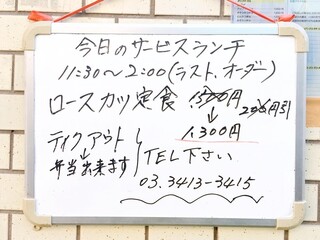 今日のサービスランチ
11:30〜2:00(ラスト.オーダー)
ロースカツ定食 1,500円
200円引
↓
1,300円
テイクアウト
↓
弁当出来ます
TEL下さい
03.3413-3415